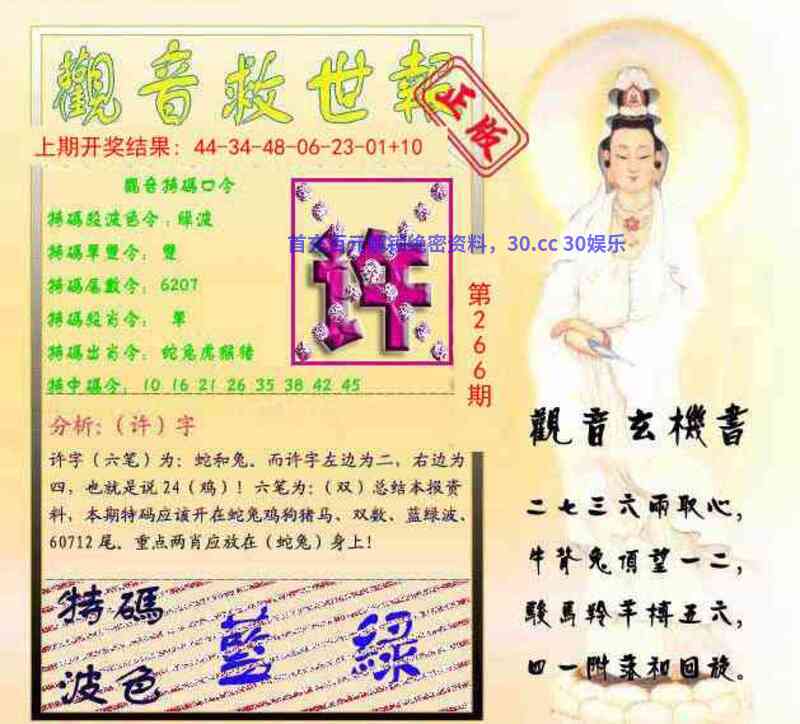 觀音救世報
正版
上期开奖结果：44-34-48-06-23-01+10
觀音特碼口令
特碼段波色令：绿波
特碼單雙令：雙
特碼尾數令：6207
特碼段肖令：單
特碼出肖令：蛇兔虎猴猪
特中碼令：10 16 21 26 35 38 42 45
许
绝密资料，30.cc 30娱乐
第266期
分析:（许）字
许字（六笔）为：蛇和兔。而许字左边为二，右边为
四，也就是说24（鸡）！六笔为：（双）总结本报资
料，本期特码应该开在蛇兔鸡狗猪马、双数、蓝绿波、
60712尾。重点两肖应放在（蛇兔）身上！
特碼
波色
藍 緑
觀音玄機書
二七三六兩取心，
牛背兔頂望一二，
駿馬羚羊搏五六，
四一附落和回旋。